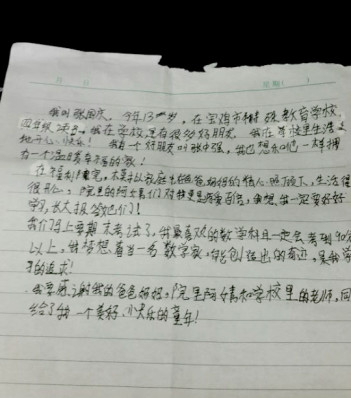 我叫张国庆。今年13岁。在宝鸡市 教育学校
四年级读书。我在学校里有很多好朋友。我在学校里生活
地开心、快乐！我有一个好朋友叫张中强，我也想和他一样拥
有一个温暖幸福的家！
在福利院里，不是 家庭 爸爸妈妈的 心照顾下，生活得
很开心；院里的阿姨们对我更是 ，我想，我一定要好好
学习，长大报答他们！
我们马上要期末考试了，我最喜欢的数学科目一定会考到90分
以上，我梦想着当一名数学家，能创造出 的奇迹，是我
的追求！
我要感谢我的爸爸妈妈，院里阿姨和学校里的老师，
给了我一个美好、快乐的童年！